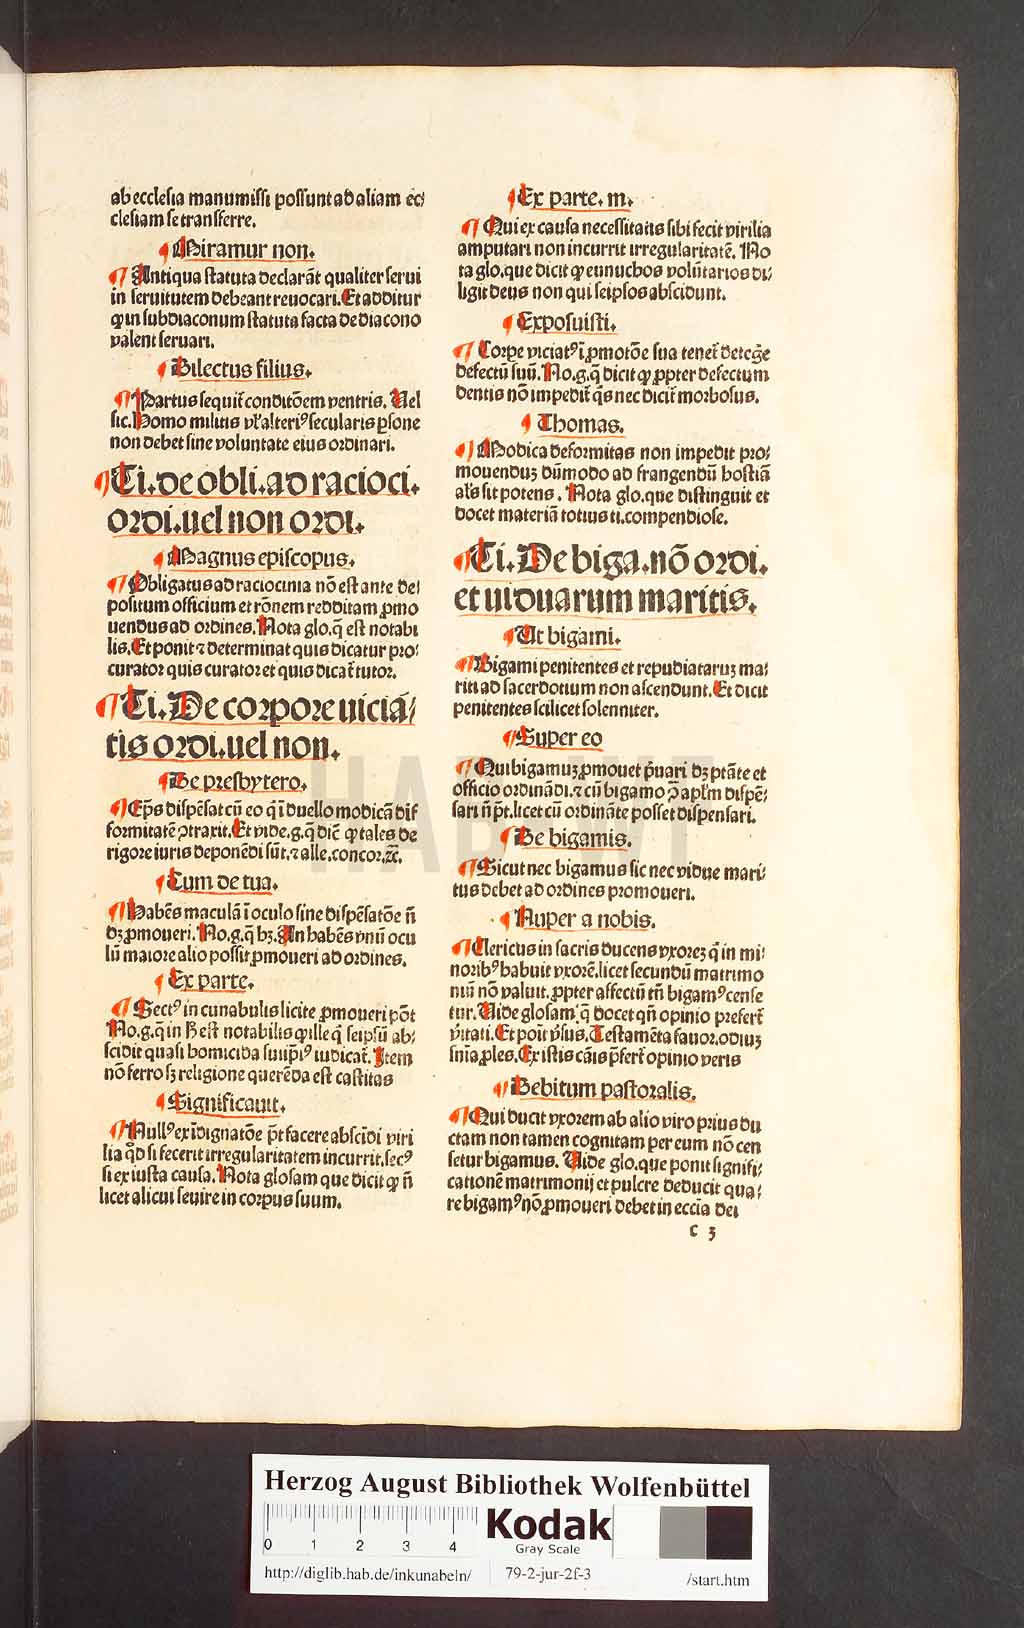 ab ecclesia manumissi possunt ad aliam ec⸗
clesiam se transferre.
¶ Miramur non.
¶ Antiqua statuta declarãt qualiter serui
in seruitutem debeant reuocari. Et additur
ꝙ in subdiaconum statuta facta de diacono
valent seruari.
¶ Dilectus filius.
¶ Partus sequit̃ conditõem ventris. Vel
sic. Homo militis vl̃ alteriꝰ secularis ꝑsone
non debet sine voluntate eius ordinari.
¶ Ti. de obli. ad racioci.
ordi. uel non ordi.
¶ Magnus episcopus.
¶ Obligatus ad raciocinia nõ est ante de⸗
positum officium et rõnem redditam ꝓmo
uendus ad ordines. Nota glo. q̃ est notabi
lis. Et ponit ⁊ determinat quis dicatur pro⸗
curator quis curator et quis dicat̃ tutor.
¶ Ti. De corpore uiciã⸗
tis ordi. uel non.
¶ De presbytero.
¶ Ep̃s dispẽsat cũ eo q̃ ĩ duello modicã dif
formitatẽ ꝯtraxit. Et vide. g. q̃ diẽ ꝙ tales de
rigore iuris deponẽdi sũt. ⁊ alle. concor. ⁊c̃.
¶ Cum de tua.
¶ Habẽs maculã ĩ oculo sine dispẽsatõe ñ
dꝫ ꝓmoueri. No. g. q̃ hꝫ. An habẽs vnũ ocu
lũ maiorẽ alio possit ꝓmoueri ad ordines.
¶ Ex parte.
¶ Sectꝰ in cunabulis licite ꝓmoueri põt
No. g. q̃ in est notabilis ꝙ ille q̃ seip̃m ab⸗
scidit quasi homicida suiip̃iꝰ iudicat̃. Item
nõ ferro sꝫ religione querẽda est castitas
¶ Significauit.
¶ Nullꝰ ex ĩdignatõe p̃t facere abscĩdi viri
lia ꝙd si fecerit irregularitatem incurrit. secꝰ
si ex iusta causa. Nota glosam que dicit ꝙ ñ
licet alicui seuire in corpus suum.
¶ Ex parte. m.
¶ Qui ex causa necessitatis sibi fecit virilia
amputari non incurrit irregularitatẽ. No
ta glo. que dicit ꝙ eunuchos volũtarios di⸗
ligit deus non qui seipsos abscidunt.
¶ Exposuisti.
¶ Corpe viciatꝰ ĩ ꝓmotõe sua tenet̃ detege̾
defectũ suũ. No. g. q̃ dicit ꝙ ꝓpter defectum
dentis nõ impedit̃ q̃s nec dicit̃ morbosus.
¶ Thomas.
¶ Modica deformitas non impedit pro⸗
mouenduꝫ dũmodo ad frangendũ hostiã
al̃s sit potens. Nota glo. que distinguit et
docet materiã totius ti. compendiose.
¶ Ti. De biga. nõ ordi.
et uiduarum maritis.
¶ Ut bigami.
¶ Bigami penitentes et repudiataruꝫ ma⸗
riti ad sacerdotium non ascendunt. Et dicit
penitentes scilicet solenniter.
¶ Super eo
¶ Qui bigamuꝫ ꝓmouet p̃uari dꝫ ptãte et
officio ordinãdi. ⁊ cũ bigamo ꝯ̃ apl̃m dispẽ⸗
sari ñ p̃t. licet cũ ordinãte posset dispensari.
¶ De bigamis.
¶ Sicut nec bigamus sic nec vidue mari⸗
tus debet ad ordines promoueri.
¶ Nuper a nobis.
¶ Clericus in sacris ducens vxorẽ q̃ in mi⸗
noribꝰ habuit vxorẽ. licet secundũ matrimo
niũ nõ valuit. ꝓpter affectũ tñ bigamꝰ cense
tur. Vide glosam. q̃ docet qñ opinio prefert̃
ṽitati. Et poĩt ṽsus. Testamẽta fauor. odiuꝫ
sñia ꝓles. Ex istis cãis p̃fert̃ opinio veris
¶ Debitum pastoralis.
¶ Qui ducit vxorem ab alio viro prius du
ctam non tamen cognitam per eum nõ cen
setur bigamus. Vide glo. que ponit signifi⸗
cationẽ matrimonij et pulcre deducit qua⸗
re bigamꝰ nõ ꝓmoueri debet in ecc̃ia dei
c 3
HAB WF
Herzog August Bibliothek Wolfenbüttel
0 1 2 3 4
Kodak
Gray Scale
http://diglib.hab.de/inkunabeln/ 79-2-jur-2f-3 /start.htm